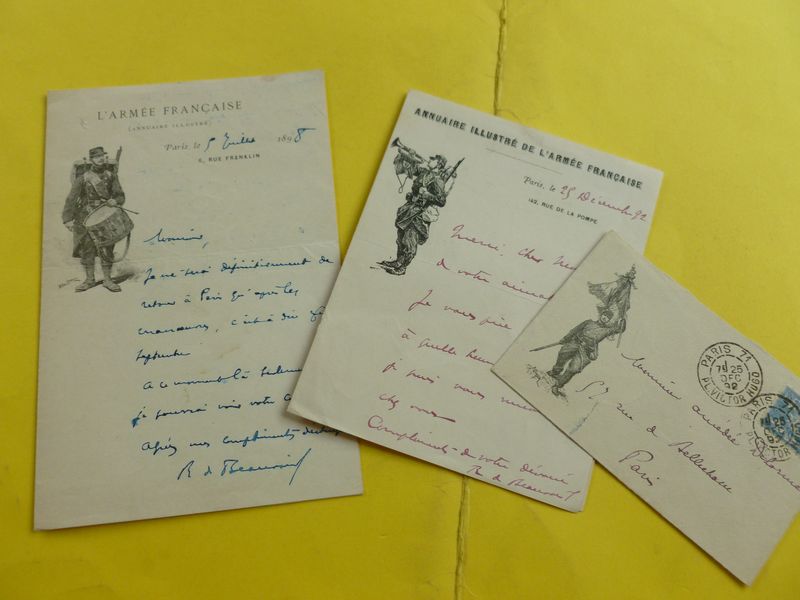 L'ARMÉE FRANÇAISE
(ANNUAIRE ILLUSTRÉ)
Paris, le 5 Juillet 1898
6, RUE FRANKLIN
Monsieur,
Je ne serai définitivement de
retour à Paris qu'après les
manœuvres, c'est à dire
Septembre
A ce moment là seulement
je pourrai voir votre
Agréez mes compliments
R de Beauvoir
ANNUAIRE ILLUSTRÉ DE L'ARMÉE FRANÇAISE
Paris, le 25 Décembre 92
142, RUE DE LA POMPE
Merci, cher
de votre
Je vous prie
à quelle heure
je puis vous
chez vous
Compliments de votre dévoué
R de Beauvoir
Monsieur Amédée
rue de Bellechasse
Paris
PARIS 71
7E 25
DEC
92
PL. VICTOR HUGO
PARIS 71
25
VICTOR